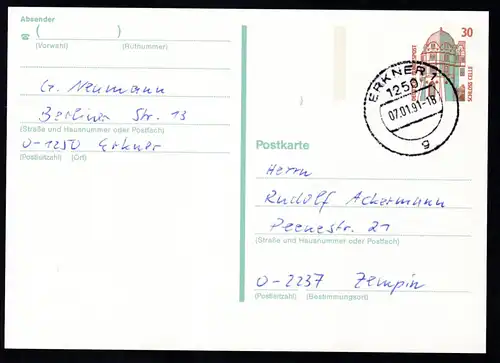 Absender
☎ ( )
(Vorwahl) (Rufnummer)
G. Neumann
Berliner Str. 13
(Straße und Hausnummer oder Postfach)
O-1250 Erkner
(Postleitzahl) (Ort)
30
SCHLOSS CELLE
ERKNER
1250
07.01.91-18
g
Postkarte
Herrn
Rudolf Ackermann
Peenestr. 21
(Straße und Hausnummer oder Postfach)
O-2237 Zempin
(Postleitzahl) (Bestimmungsort)